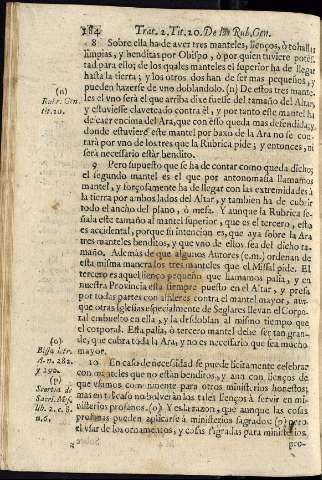 184 Trat. 2. Tit. 20. De las Rub. Gen.
8 Sobre ella ha de aver tres manteles, lienços, ò tohallas
limpias, y benditas por Obispo, ò por quien tuviere potes-
tad para ello; de los quales manteles el superior ha de llegar
hasta la tierra; y los otros dos han de ser mas pequeños, y
pueden hazerse de vno doblandolo. (n) De estos tres mante-
les el vno serà el que arriba dixe fuesse del tamaño del Altar,
y estuviesse claveteado contra èl, y por tanto este mantel ha
de caer encima del Ara, que con èsso queda mas defendida; y
donde estuviere este mantel por baxo de la Ara no se con-
tarà por vno de los tres que la Rubrica pide; y entonces, ni
serà necessario estàr bendito.
(n)
Rubr. Gen.
tit. 20.
9 Pero supuesto que se ha de contar como queda dicho;
el segundo mantel es el que por antonomasia llamamos
mantel, y forçosamente ha de llegar con las extremidades à
la tierra por ambos lados del Altar, y tambien ha de cubrir
todo el ancho del plano, ò mesa. Y aunque la Rubrica se-
ñala este tamaño al mantel superior, que es el tercero, esto
es accidental, porque su intencion es, que aya sobre la Ara
tres manteles benditos, y que vno de ellos sea del dicho ta-
maño. Ademàs de que algunos Autores (e.m.) ordenan de
esta misma manera los tres manteles que el Missal pide. El
tercero es aquel lienço pequeño que llamamos palia, y en
nuestra Provincia està siempre puesto en el Altar, y preso
por todas partes con alfileres contra el mantel mayor, aun-
que otras Iglesias especialmente de Seglares llevan el Corpo-
ral embuelto en ella, y la desdoblan al mismo tiempo que
el corporal. Esta palia, ò tercero mantel debe ser tan gran-
de, que cubra toda la Ara, y no es necessario que sea mucho
mayor.
10 En caso de necessidad se puede licitamente celebrar
con manteles que no estàn benditos, y aun con lienços de
que vsamos comunmente para otros ministerios honestos;
mas en tal caso no bolveràn los tales lienços à servir en mi-
nisterios profanos. (o) Y es la razon, que aunque las cosas
profanas pueden aplicarse à ministerios sagrados (p) pero
el vsar de los ornamentos, y cosas sagradas para ministerios
pro-
(o)
n. 282.
y 290.
(p)
lib. 2. c. 8.
n. 6.